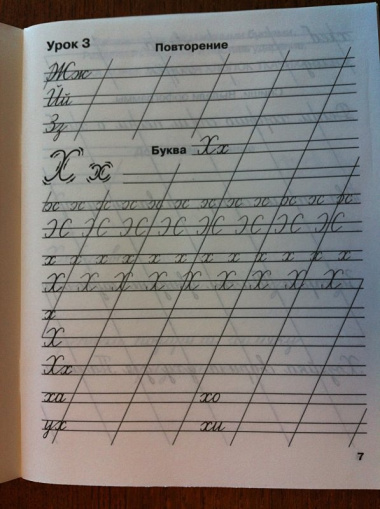 Урок 3
Повторение
Жж
Йй
Зз
Буква Хх
Х х
х х х х х х х х х
Х Х Х Х Х Х Х Х
х х х х х х х х х х
Х Х Х Х Х Х Х Х Х
х
Х
Хх
ха хо
ух хи
7